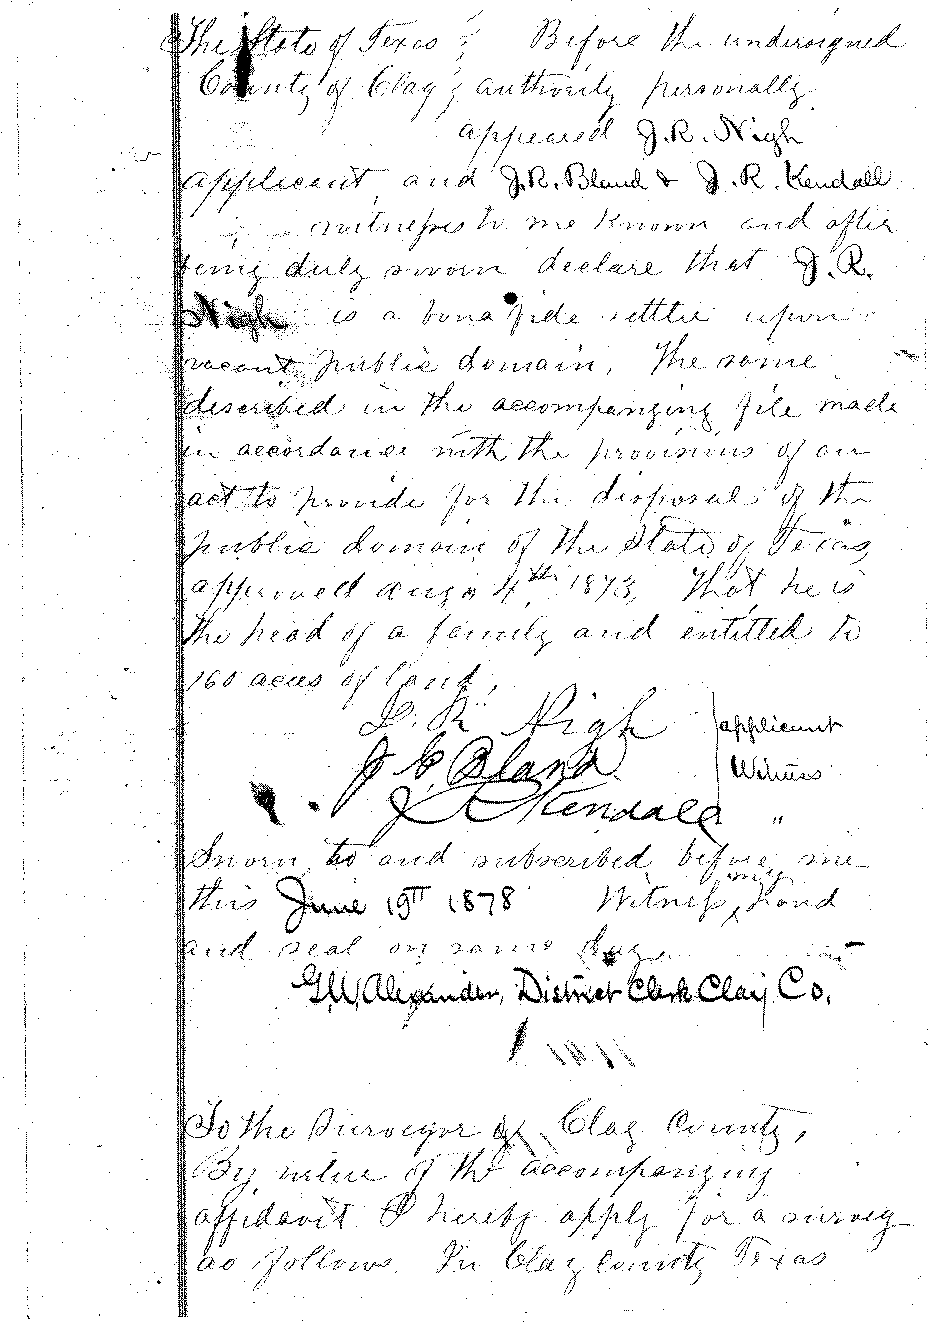 The State of Texas } Before the undersigned
County of Clay } authority personally
appeared J. R. Nigh
applicant and J. R. Bland & J. R. Kendall
witness to me known and after
being duly sworn declare that J. R.
Nigh is a bona fide settler upon
vacant public domain, The same
described in the accompanying file made
in accordance with the provisions of an
act to provide for the disposal of the
public domain of the State of Texas,
approved 4th 1873, That he is
the head of a family and entitled to
160 acres of land,
Nigh applicant
Bland Witness
Kendall "
Sworn to and subscribed before me
this June 19th 1878 Witness my hand
and seal on same day
G.W. Alexander, District Clerk Clay Co.
To the Surveyor of Clay County,
By virtue of the accompanying
affidavit I hereby apply for a survey
as follows. In Clay County Texas